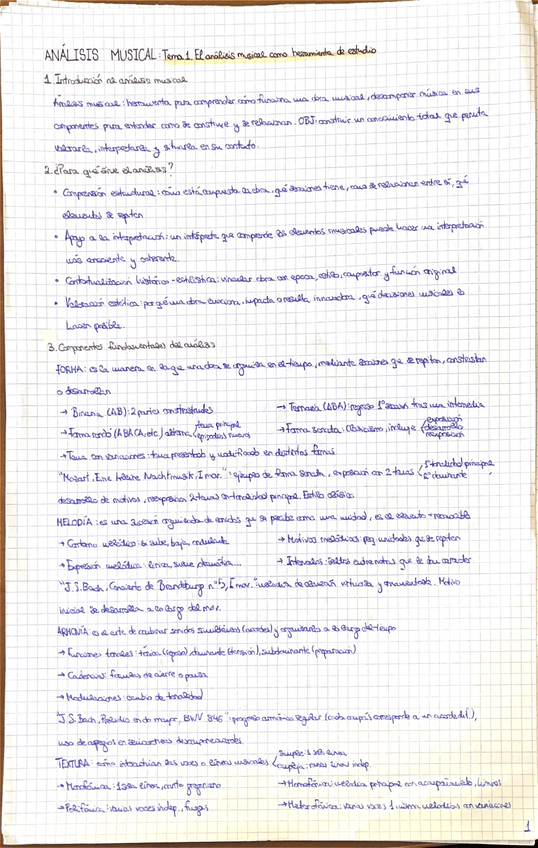 ANÁLISIS MUSICAL: Tema 1. El análisis musical como herramienta de estudio
1. Introducción al análisis musical
Análisis musical: herramienta para comprender cómo funciona una obra musical, descomponer música en sus
componentes para entender como se construye y se relacionan. OBJ: construir un conocimiento total que permita
valorarla, interpretarla y situarla en su contexto.
2. ¿Para qué sirve el análisis?
• Comprensión estructural: cómo está compuesta la obra, qué secciones tiene, como se relacionan entre sí, qué
elementos se repiten
• Apoyo a la interpretación: un intérprete que comprende los elementos musicales puede hacer una interpretación
más consciente y coherente
• Contextualización histórico-estilística: vincular obra con época, estilo, compositor y función original
• Valoración estética: por qué una obra emociona, impacta o resulta innovadora, qué decisiones musicales lo
hacen posible.
3. Componentes fundamentales del análisis
FORMA: es la manera en la que una obra se organiza en el tiempo, mediante secciones que se repiten, contrastan
o desarrollan
→ Binaria (AB): 2 partes contrastadas → Ternaria (ABA): regreso 1ª sección tras una intermedia
→ Forma rondó (ABACA, etc.) alterna tema principal episodios nuevos → Forma sonata: Clasicismo, incluye exposición desarrollo reexposición
→ Tema con variaciones: tema presentado y modificado en distintas formas
"Mozart, Eine kleine Nachtmusik, I mov.": ejemplo de forma sonata, exposición con 2 temas 1º tonalidad principal 2º dominante
desarrollo de motivos, reexposición 2 temas en tonalidad principal. Estilo clásico
MELODÍA: es una sucesión organizada de sonidos que se percibe como una unidad, es el elemento + reconocible
→ Contorno melódico: si sube, baja, ondulante → Motivos melódicos: peq unidades que se repiten
→ Expresión melódica: lírica, suave, dramática... → Intervalos: saltos entre notas que le dan carácter
"J.S. Bach, Concierto de Brandeburgo nº5, I mov.": melodía de clavecín virtuosa y ornamentada. Motivo
inicial se desarrolla a lo largo del mov.
ARMONÍA: es el arte de combinar sonidos simultáneos (acordes) y organizarlos a lo largo del tiempo
→ Funciones tonales: tónica (reposo), dominante (tensión), subdominante (preparación)
→ Cadencias: fórmulas de cierre o pausa
→ Modulaciones: cambio de tonalidad
"J.S. Bach, Preludio en do mayor, BWV 846": progreso armónico regular (cada compás corresponde a un acorde),
uso de arpegios en
TEXTURA: cómo interactúan las voces o líneas musicales simple: 1 sola línea compleja: varias líneas indep.
→ Monofónica: 1 sola línea, canto gregoriano → Homofónica: melodía principal con acompañamiento, himnos
→ Polifónica: varias voces indep, fugas → Heterofónica: varias voces 1 misma melodía con variaciones
1